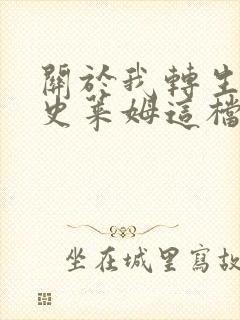 關於我轉生
史萊姆這檔
坐在城里寫故